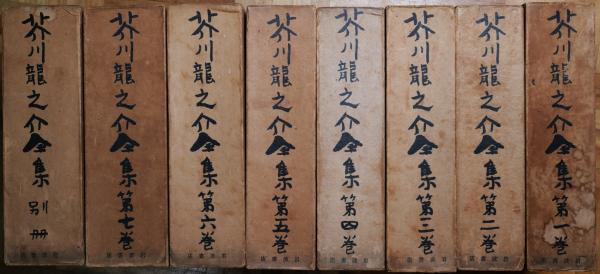 芥川龍之介全集 第一巻
岩波書店
芥川龍之介全集 第二巻
岩波書店
芥川龍之介全集 第三巻
岩波書店
芥川龍之介全集 第四巻
岩波書店
芥川龍之介全集 第五巻
岩波書店
芥川龍之介全集 第六巻
岩波書店
芥川龍之介全集 第七巻
岩波書店
芥川龍之介全集 別冊
岩波書店